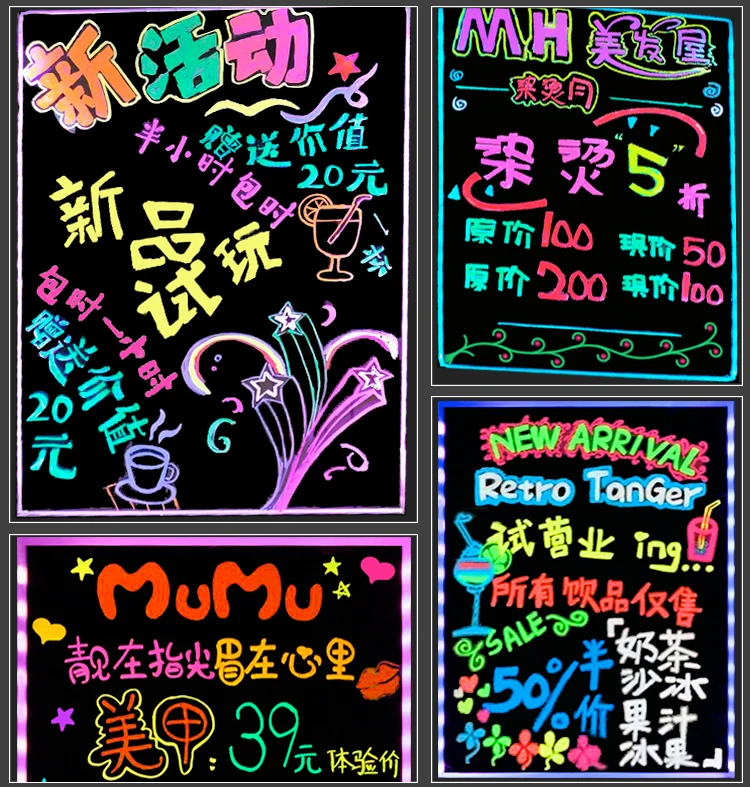 新活动
半小时包时
赠送价值
20元
一杯
新品试玩
包时一小时
赠送价值
20元
MH美发屋
染烫月
染烫"5"折
原价100 现价50
原价200 现价100
MuMu
靓在指尖眉在心里
美甲:39元体验价
NEW ARRIVAL
Retro TanGer
试营业 ing...
所有饮品仅售
SALE
50%半价
「奶茶
沙冰
果汁
冰果」